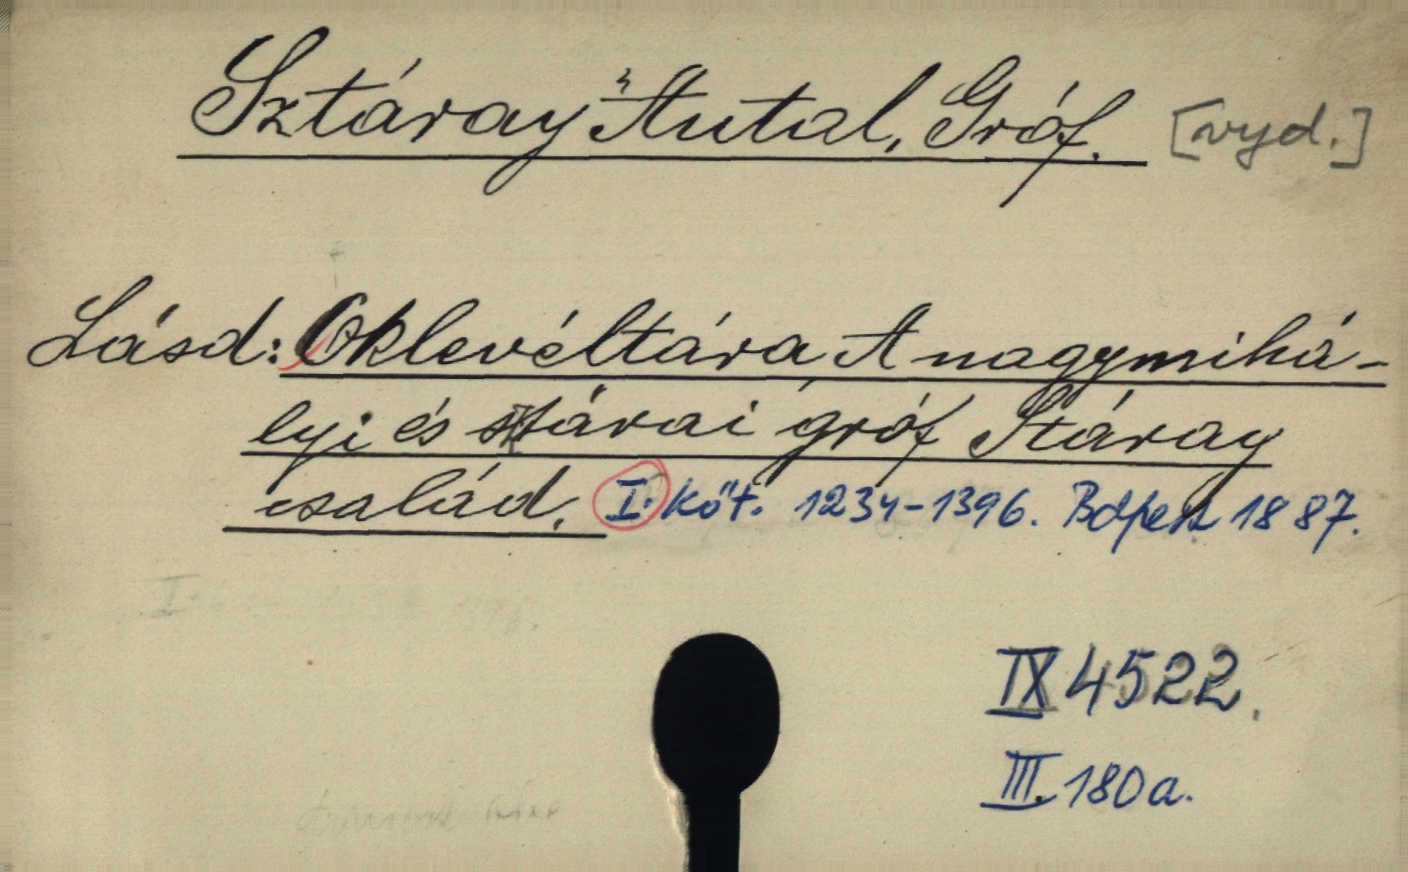 Sztáray Antal, Gróf. [vyd.]
Lásd: Oklevéltára A nagymihá-
lyi és sztárai gróf Sztáray
család. I. köt. 1234-1396. Bdpest 1887.
IX 4522.
III. 180a.